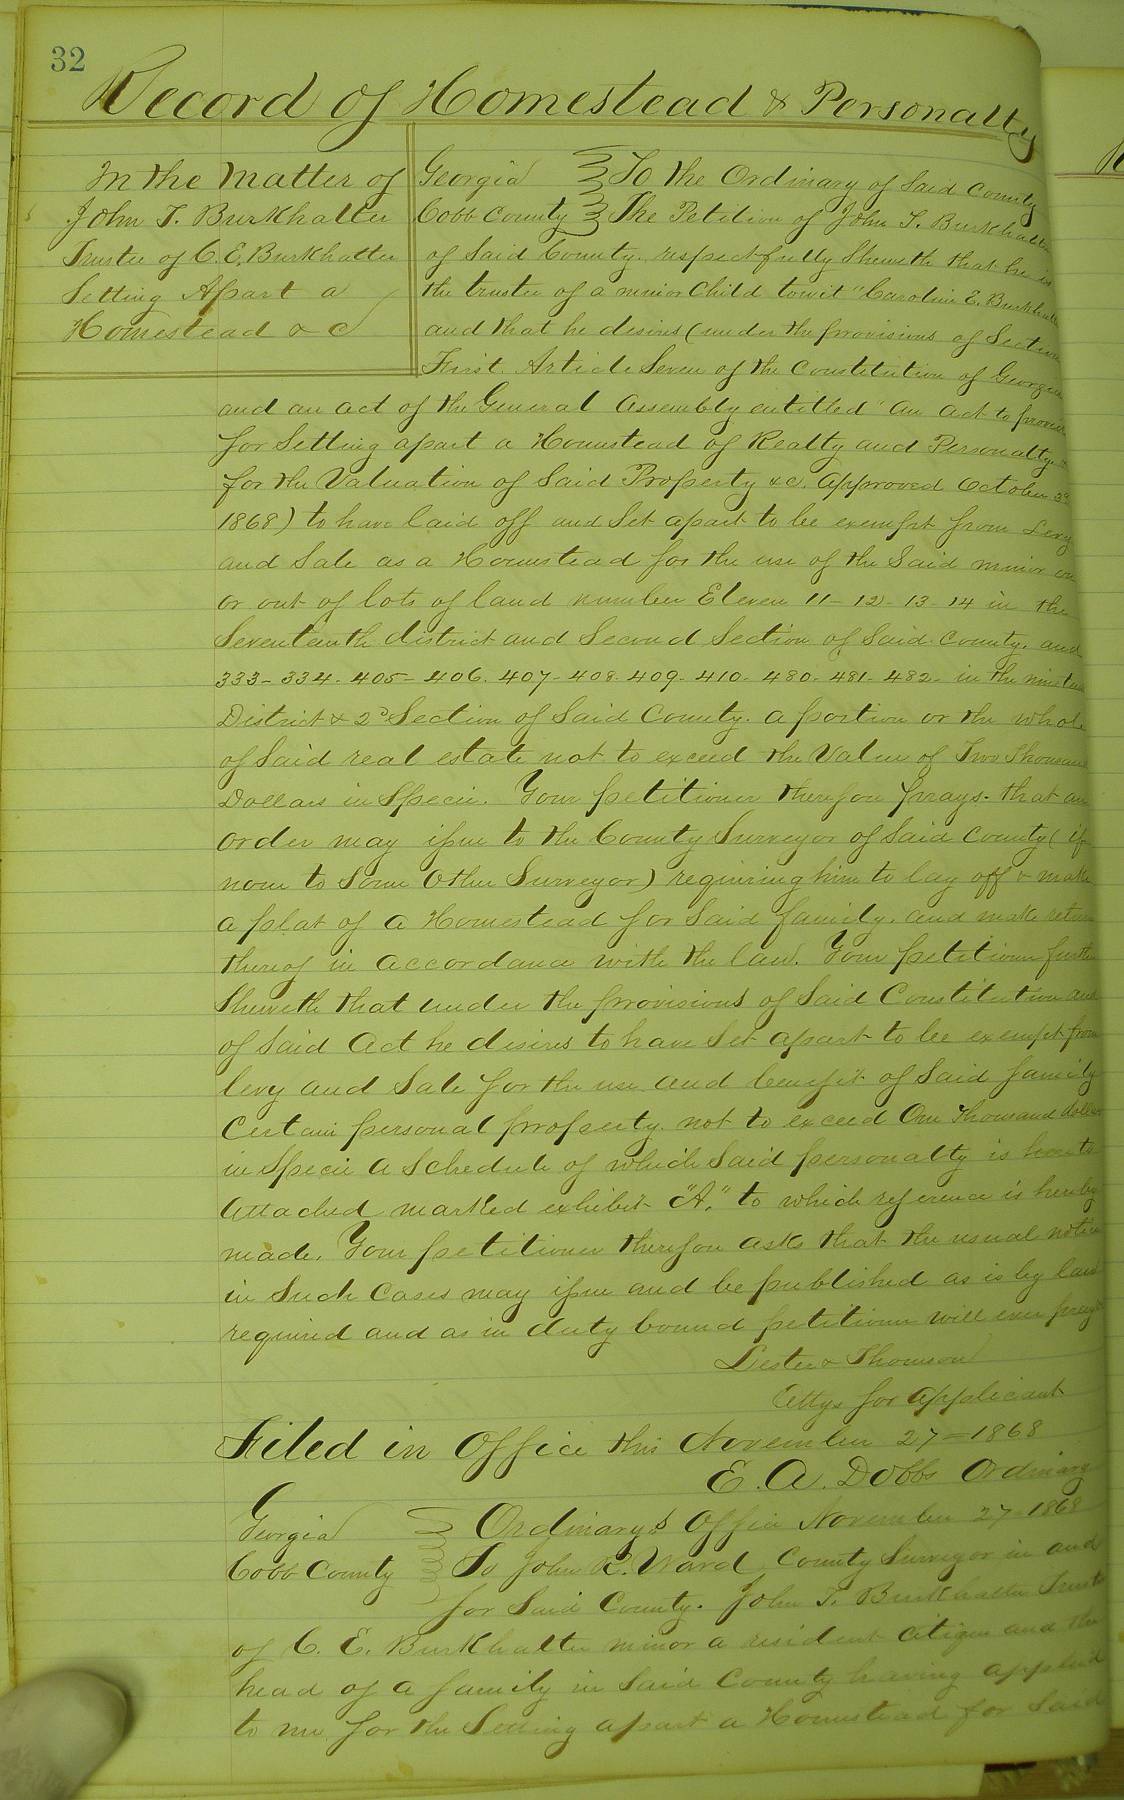 32
Record of Homestead & Personalty
In the Matter of
John T. Burkhalter
Trustee of C. E. Burkhalter
Setting Apart a
Homestead & C
Georgia To the Ordinary of Said County
Cobb County The Petition of John T. Burkhalter
of Said County. respectfully Sheweth that he is
the trustee of a minor Child towit "Caroline E. Burkhalter
and that he desires (under the provisions of Section
First Article Seven of the Constitution of Georgia
and an act of the General Assembly entitled "an act to provide
for Setting apart a Homestead of Realty and Personalty.
for the Valuation of Said Property &c. approved October 3d
1868) to have laid off and Set apart to be exempt from Levy
and Sale as a Homestead for the use of the Said minor on
or out of lots of land number Eleven 11-12-13-14 in the
Seventeenth district and Second Section of Said County. and
333-334-405-406. 407-408. 409-410-480-481-482- in the
District & 2d Section of Said County. a portion or the whole
of Said real estate not to exceed the Value of Two Thousand
Dollars in Specie. Your petitioner therefore prays. that an
order may issue to the County Surveyor of Said County (if
none to Some Other Surveyor) requiring him to lay off & make
a plat of a Homestead for Said family. and make return
thereof in accordance with the law. Your petitioner further
Sheweth that under the provisions of Said Constitution and
of Said Act he desires to have Set apart to be exempt from
levy and Sale for the use and benefit of Said family
Certain personal property. not to exceed One Thousand dollars
in Specie a Schedule of which Said personalty is hereto
attached marked exhibit "A." to which reference is hereby
made. Your petitioner therefore asks that the usual notice
in Such Cases may issue and be published as is by law
required and as in duty bound petitioner will ever pray &c
Lester & Thomson
Attys for applicant
Filed in Office this November 27-1868
E. A. Dobbs Ordinary
Georgia Ordinary's Office November 27-1868
Cobb County To John R. Ward County Surveyor in and
for Said County. John T. Burkhalter Trustee
of C. E. Burkhalter minor a resident citizen and the
head of a family in Said County having applied
to me for the Setting apart a Homestead for Said